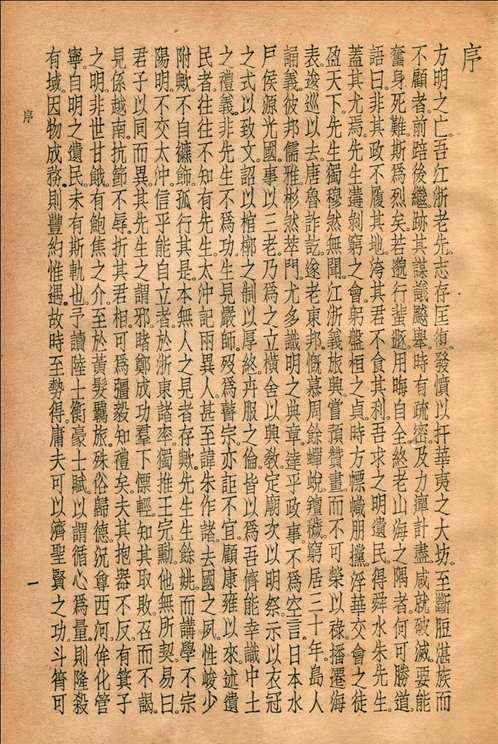 序
方明之亡吾江浙老先志存匡復發憤以扞華夷之大坊至斷脰湛族而
不顧者前踣後繼跡其謀議飈舉時有疏密及力癉計盡咸就破滅要能
奮身死難斯為烈矣若遯行蜚遯用晦自全終老山海之隅者何可勝道
語曰非其政不履其地洿其君不食其利吾求之明遺民得舜水朱先生
蓋其尤焉先生蕩剝窮之會躬盤桓之貞時方標幟朋攩浮華交會之徒
盈天下先生獨穆然無聞江浙義旅興嘗預贊畫而不可榮以祿播遷海
表逡巡以去唐魯詐訖遂老東邦慨慕周餘蟬蛻羶穢窮居三十年島人
誦義彼邦儒雅彬然萃門尤多識明之典章達乎政事不為空言日本水
戶侯源光國事以三老乃為之立橫舍以興敎定廟次以明祭示以衣冠
之式以致文詔以棺槨之制以厚終卉服之倫皆以為吾儕能幸識中土
之禮義非先生不為功生見嚴師歿為瞽宗亦詎不宜顧康雍以來述遺
民者往往不知有先生太沖記兩異人甚至諱朱作諸去國之夙性峻少
附歟不自襮飾孤行其是本無人之見者存歟先生生餘姚而講學不宗
陽明不交太沖信乎能自立者於浙東諸率獨推王完勳他無所契易曰
君子以同而異其先生之謂邪晞鄭成功羣下慓輕知其取敗召而不謁
見係越南抗節不辱折其君相可為彊毅知禮矣夫其抱器不反有箕子
之明非世甘餓有鮑焦之介至於黃髮羈旅殊俗歸德況尊西河侔化管
寧自明之遺民未有斯軌也予讀陸士衡豪士賦以謂循心為量則隆殺
有域因物成務則豐約惟遇故時至勢得庸夫可以濟聖賢之功斗筲可
序
一